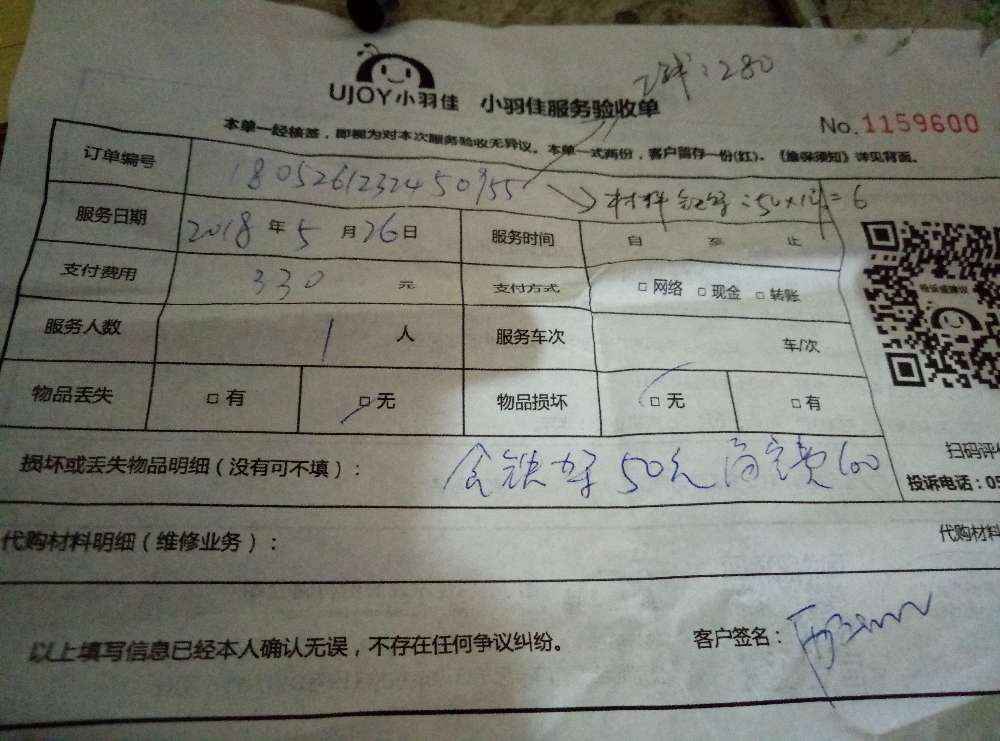 :280
UJOY小羽佳 小羽佳服务验收单
No.1159600
本单一经核签，即视为对本次服务验收无异议。本单一式两份，客户留存一份(红)。《维保须知》详见背面。
订单编号 180526123245 0955
材料 :50 = 6
服务日期 2018 年 5 月 26 日 服务时间 自 至 止
支付费用 330 元 支付方式 □ 网络 □ 现金 □ 转账
投诉或建议
服务人数 1 人 服务车次 车/次
物品丢失 □ 有 □ 无 物品损坏 □ 无 □ 有
扫码评
损坏或丢失物品明细（没有可不填）： 含铁 50元 高空费100
投诉电话：05
代购材料明细（维修业务）： 代购材料
以上填写信息已经本人确认无误，不存在任何争议纠纷。 客户签名：